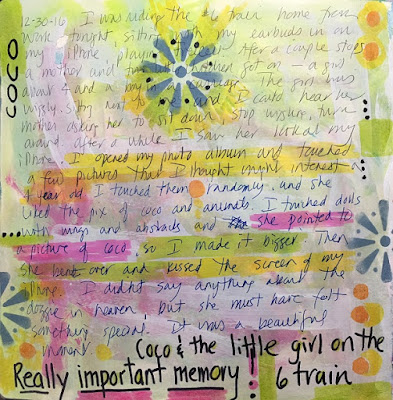 COCO
12-30-16 I was riding the #6 train home from
work tonight, sitting with my earbuds in on
my iPhone playing After a couple stops
a mother and two children got on - a girl
about 4 and a in a carriage. The girl was
wiggly sitting next to and I could hear her
mother asking her to sit down, stop wiggling, turn
around. After a while I saw her look at my
iPhone. I opened my photo album and touched
a few pictures that I thought might interest a
4 year old. I touched them randomly, and she
liked the pix of Coco and animals. I touched dolls
with wings and abstracts and she pointed to
a picture of Coco, so I made it bigger. Then
she bent over and kissed the screen of my
iPhone. I didn't say anything about the
doggie in heaven, but she must have felt
something special. It was a beautiful
moment.
Coco & the little girl on the
Really important memory !! 6 train